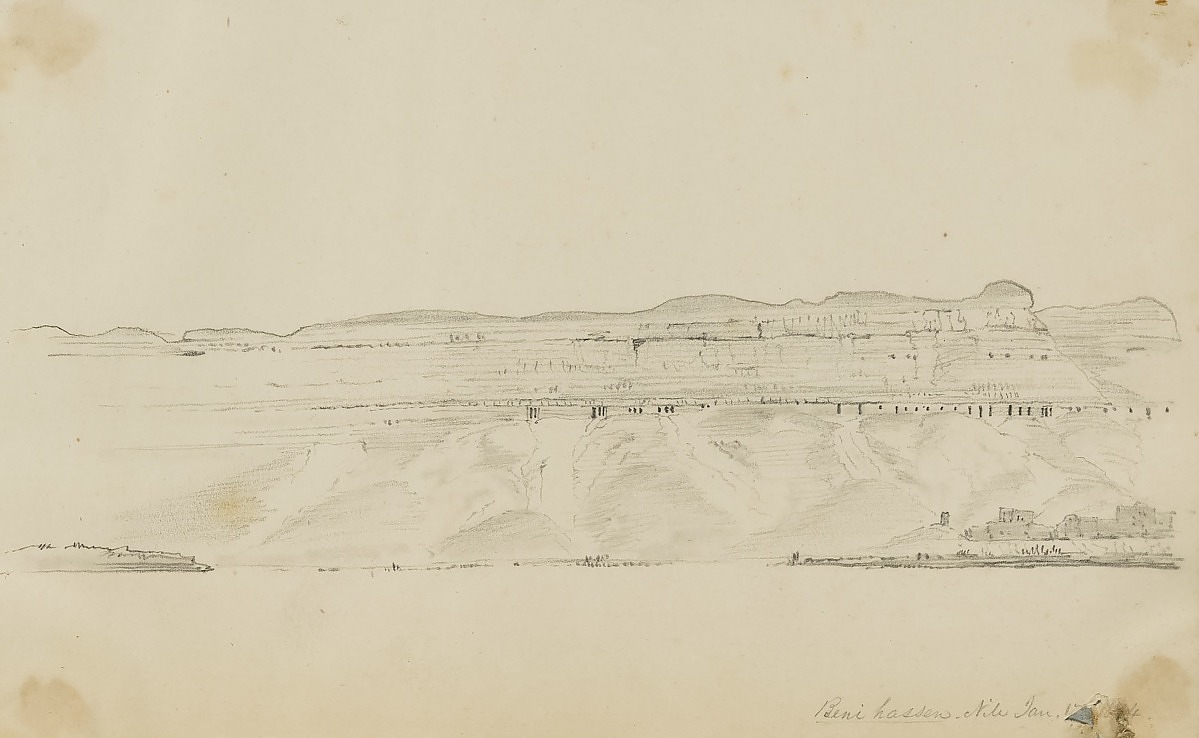 Beni hassen. Nile Jan.